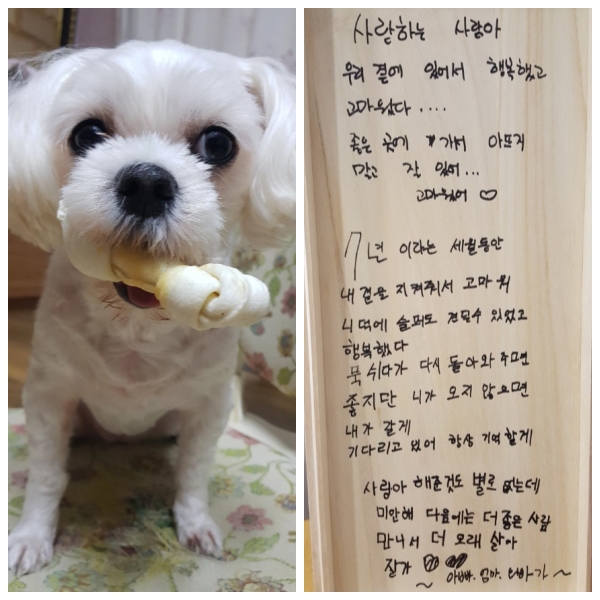 사랑하는 사랑아
우리 곁에 있어서 행복했고
고마웠다 ....
좋은 곳에 가서 아프지
말고 잘 있어...
고마웠어 ♡
7년 이라는 세월동안
내 곁을 지켜줘서 고마워
니 덕에 슬퍼도 견딜수 있었고
행복했다
푹 쉬다가 다시 돌아와 주면
좋지만 니가 오지 않으면
내가 갈게
기다리고 있어 항상 기억할게
사랑아 해준것도 별로 없는데
미안해 다음에는 더 좋은 사람
만나서 더 오래 살아
잘가 ♡♡
~ 아빠. 엄마. 오빠가 ~